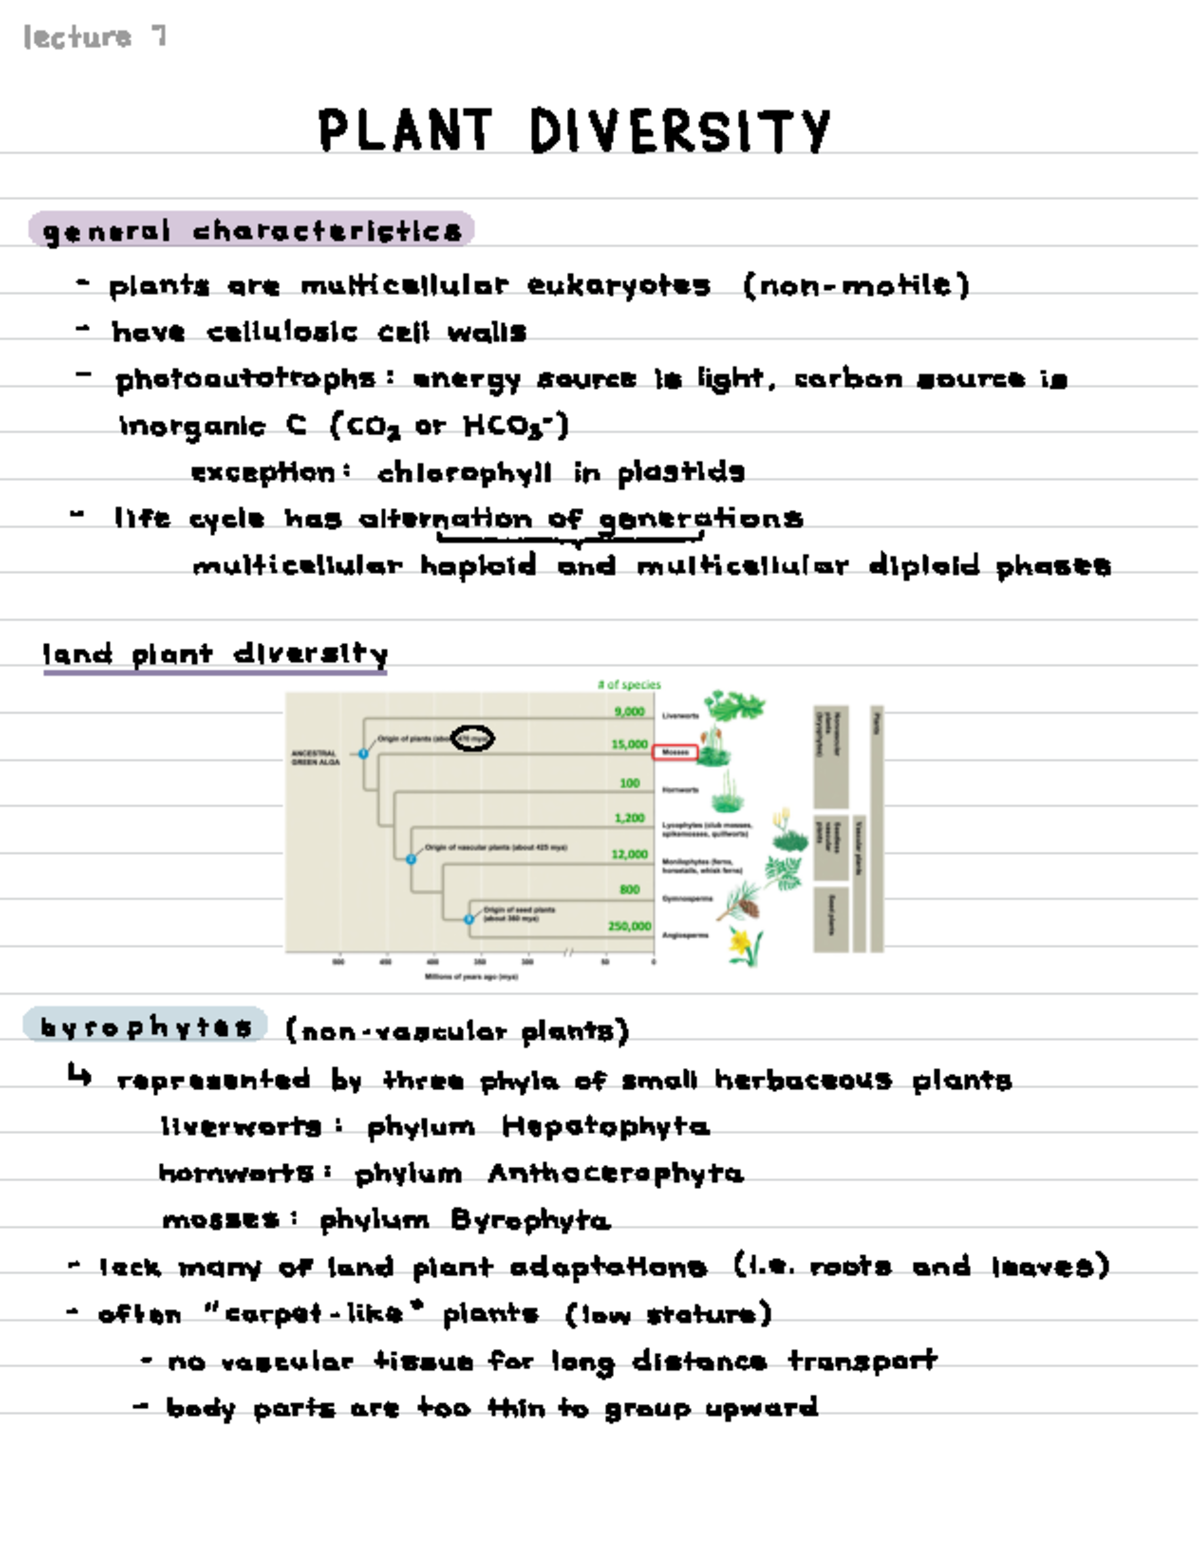 lecture 7
PLANT DIVERSITY
general characteristics
- plants are multicellular eukaryotes (non-motile)
- have cellulosic cell walls
- photoautotrophs: energy source is light, carbon source is
inorganic C (CO₂ or HCO₃⁻)
exception: chlorophyll in plastids
- life cycle has alternation of generations
multicellular haploid and multicellular diploid phases
land plant diversity
# of species
9,000 Liverworts
Origin of plants (about 475 mya)
ANCESTRAL
GREEN ALGA
1
15,000 Mosses
100 Hornworts
1,200 Lycophytes (club mosses,
spikemosses, quillworts)
Origin of vascular plants (about 425 mya)
2
12,000 Monilophytes (ferns,
horsetails, whisk ferns)
800 Gymnosperms
Origin of seed plants
(about 360 mya)
3
250,000 Angiosperms
Nonvascular
plants
(bryophytes)
Seedless
vascular
plants
Seed plants
Vascular plants
Plants
500 450 400 350 300 50 0
Millions of years ago (mya)
byrophytes (non-vascular plants)
↳ represented by three phyla of small herbaceous plants
liverworts: phylum Hepatophyta
hornworts: phylum Anthocerophyta
mosses: phylum Byrophyta
- lack many of land plant adaptations (i.e. roots and leaves)
- often "carpet-like" plants (low stature)
- no vascular tissue for long distance transport
- body parts are too thin to group upward